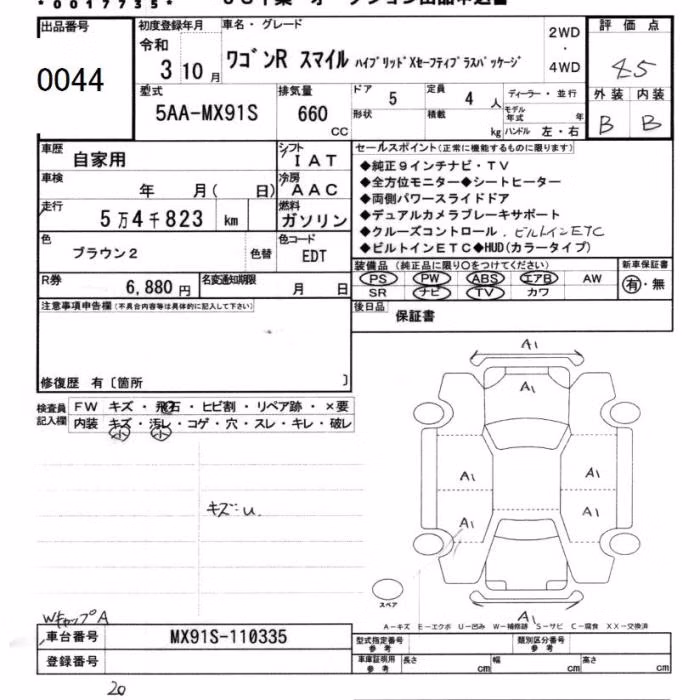 *0017735*
出品番号
0044
初度登録年月
令和
3 10 月
車名・グレード
ワゴンR スマイル ハイブリッドXセーフティプラスパッケージ
2WD
・
4WD
評価点
4.5
外装 内装
B B
型式
5AA-MX91S
排気量
660
CC
ドア
5
定員
4 人
形状
積載
kg
ディーラー・並行
モデル年式 年
ハンドル 左・右
車歴
自家用
シフト
IAT
車検
年 月( 日)
冷房
AAC
走行
5万4千823 km
燃料
ガソリン
色
ブラウン2
色替
色コード
EDT
R券
6,880円
名変通知期限
月 日
セールスポイント(正常に機能するものに限ります)
◆純正9インチナビ・TV
◆全方位モニター◆シートヒーター
◆両側パワースライドドア
◆デュアルカメラブレーキサポート
◆クルーズコントロール. ビルトインETC
◆ビルトインETC◆HUD(カラータイプ)
装備品 (純正品に限り○をつけてください)
PS PW ABS エアB AW
SR ナビ TV カワ
新車保証書
有・無
後日品
保証書
注意事項申告欄(不具合内容等は具体的に記入して下さい)
修復歴 有〔箇所 〕
検査員記入欄
FW キズ・飛石・ヒビ割・リペア跡・×要
内装 キズ・汚レ・コゲ・穴・スレ・キレ・破レ
小 小
キズ:u.
A1
A1
A1 A1
A1 A1
A1
スペア
A-キズ E-エクボ U-凹み W-補修跡 S-サビ C-腐食 XX-交換済
WキャップA
車台番号
MX91S-110335
登録番号
型式指定番号 参考
類別区分番号 参考
車庫証明用 参考
長さ cm
幅 cm
高さ cm
20